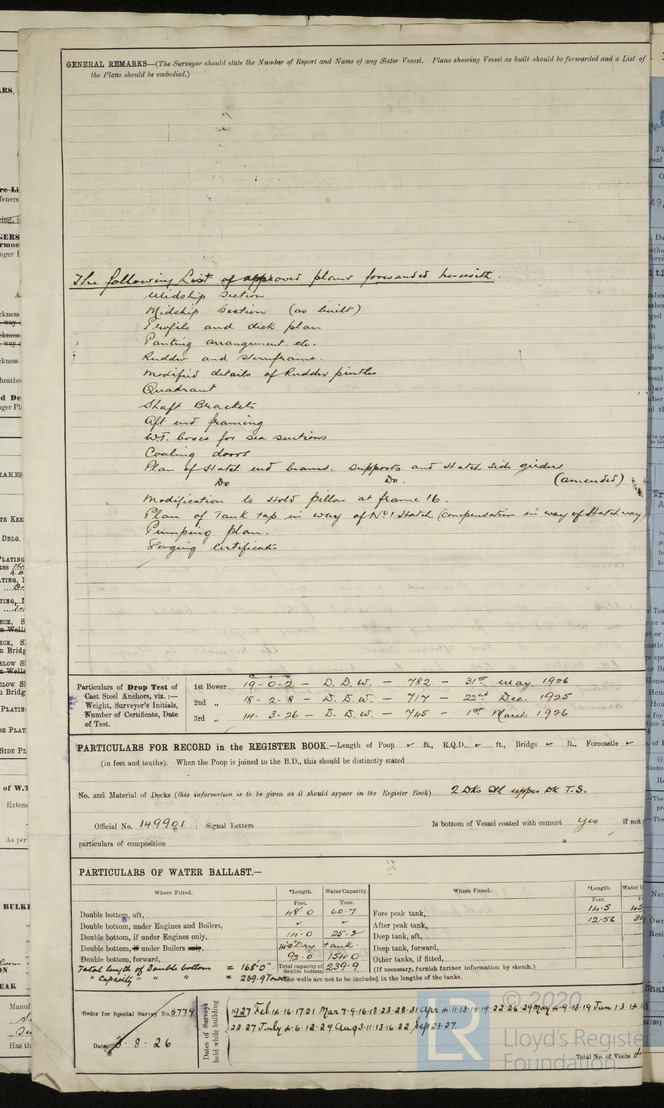 GENERAL REMARKS—(The Surveyor should state the Number of Report and Name of any Sister Vessel. Plans showing Vessel as built should be forwarded and a List of
the Plans should be embodied.)
The following List of approved plans forwarded herewith.
Midship Section
Midship Section (as built)
Profile and deck plan
Panting arrangement etc.
Rudder and sternframe.
Modified details of Rudder pintles
Quadrant
Shaft Brackets
Aft end framing
W.T. boxes for sea suctions
Coaling doors
Plan of Hatch end beams, supports and Hatch side girders
Do Do. (amended)
Modification to Hold pillar at frame 16.
Plan of Tank top in way of No1 Hatch (compensation in way of Hatchway)
Pumping plan.
Forging Certificates
Particulars of Drop Test of
Cast Steel Anchors, viz.:—
Weight, Surveyor's Initials,
Number of Certificate, Date
of Test.
1st Bower 19-0-2 — D.D.W. — 782 — 31st May 1926
2nd „ 18-2-8 — D.D.W. — 717 — 22nd Dec. 1925
3rd „ 14-3-26 — D.D.W. — 745 — 1st March 1926
PARTICULARS FOR RECORD in the REGISTER BOOK.—Length of Poop ft., R.Q.D. ft., Bridge ft., Forecastle
(in feet and tenths). When the Poop is joined to the B.D., this should be distinctly stated
No. and Material of Decks (this information is to be given as it should appear in the Register Book) 2 Dks upper Dk T.S.
Official No. 149901 ; Signal Letters Is bottom of Vessel coated with cement yes if not
particulars of composition
PARTICULARS OF WATER BALLAST.—
Where Fitted. *Length. Water Capacity. Where Fitted. *Length.
Feet. Tons. Feet.
Double bottom, aft, 48.0 60.7 Fore peak tank, 14.5
Double bottom, under Engines and Boilers, After peak tank, 12.56
Double bottom, if under Engines only, 14.0 25.2 Deep tank, aft,
Double bottom, if under Boilers only, 14.0 Dry tank. Deep tank, forward,
Double bottom, forward, 92.0 154.0 Other tanks, if fitted,
Total length of Double bottom = 168'0" Total capacity of double bottom 239.9 (If necessary, furnish further information by sketch.)
" Capacity " " " = 239.9 Tons *The wells are not to be included in the lengths of the tanks.
Order for Special Survey No. 5779
Date 3.8.26
Dates of Surveys
held while building
1927 Feb 14.16.17.21 Mar 7.9.16.18.23.28.31 Apr 4.11.13.15.19.22.26.29 May 4.9.13.19 Jun 1.3.
22.27 July 4.6.12.29 Aug 3.11.13.16.22 Sep 23.27.
Total No. of Visits
© 2020
LR
Lloyd's Register
Foundation